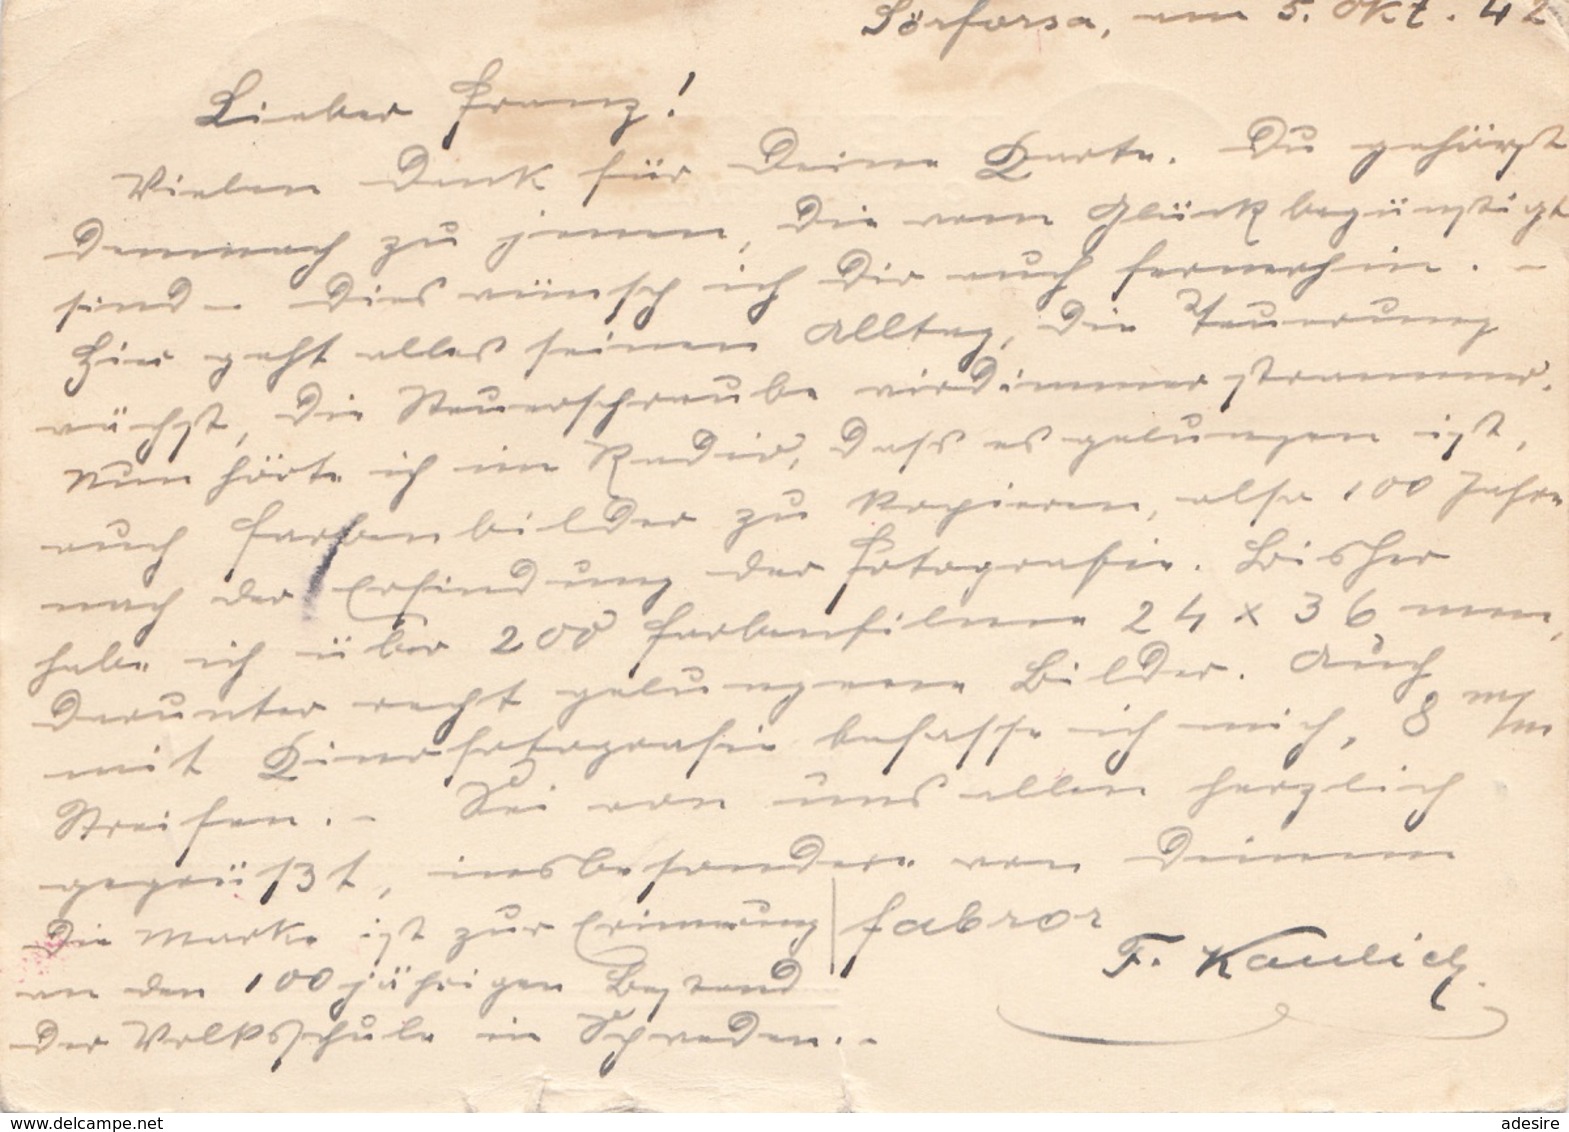 Sörforsa, am 5. Okt. 42
Lieber Franz!
Vielen Dank für Deine Karte. Du gehörst
demnach zu jenen, die vom Glück begünstigt
sind – dies wünsch ich Dir auch fernerhin. –
Hier geht alles seinen Alltag, die Teuerung
wächst, die Steuerschraube wird immer strammer.
Nun hörte ich im Radio, dass es gelungen ist,
auch Farbenbilder zu kopieren, also 100 Jahre
nach der Erfindung der Fotografie. Bisher
habe ich über 200 Farbenfilme 24 x 36 mm,
darunter recht gelungene Bilder. Auch
mit Kinofotografie befasse ich mich, 8 m/m
Streifen. – Sei von uns allen herzlich
gegrüßt, insbesondere von Deinem
Die Marke ist zur Erinnerung
an den 100 jährigen Bestand
der Volksschule in Schweden. –
F. Kaulich
www.delcampe.net
adesire